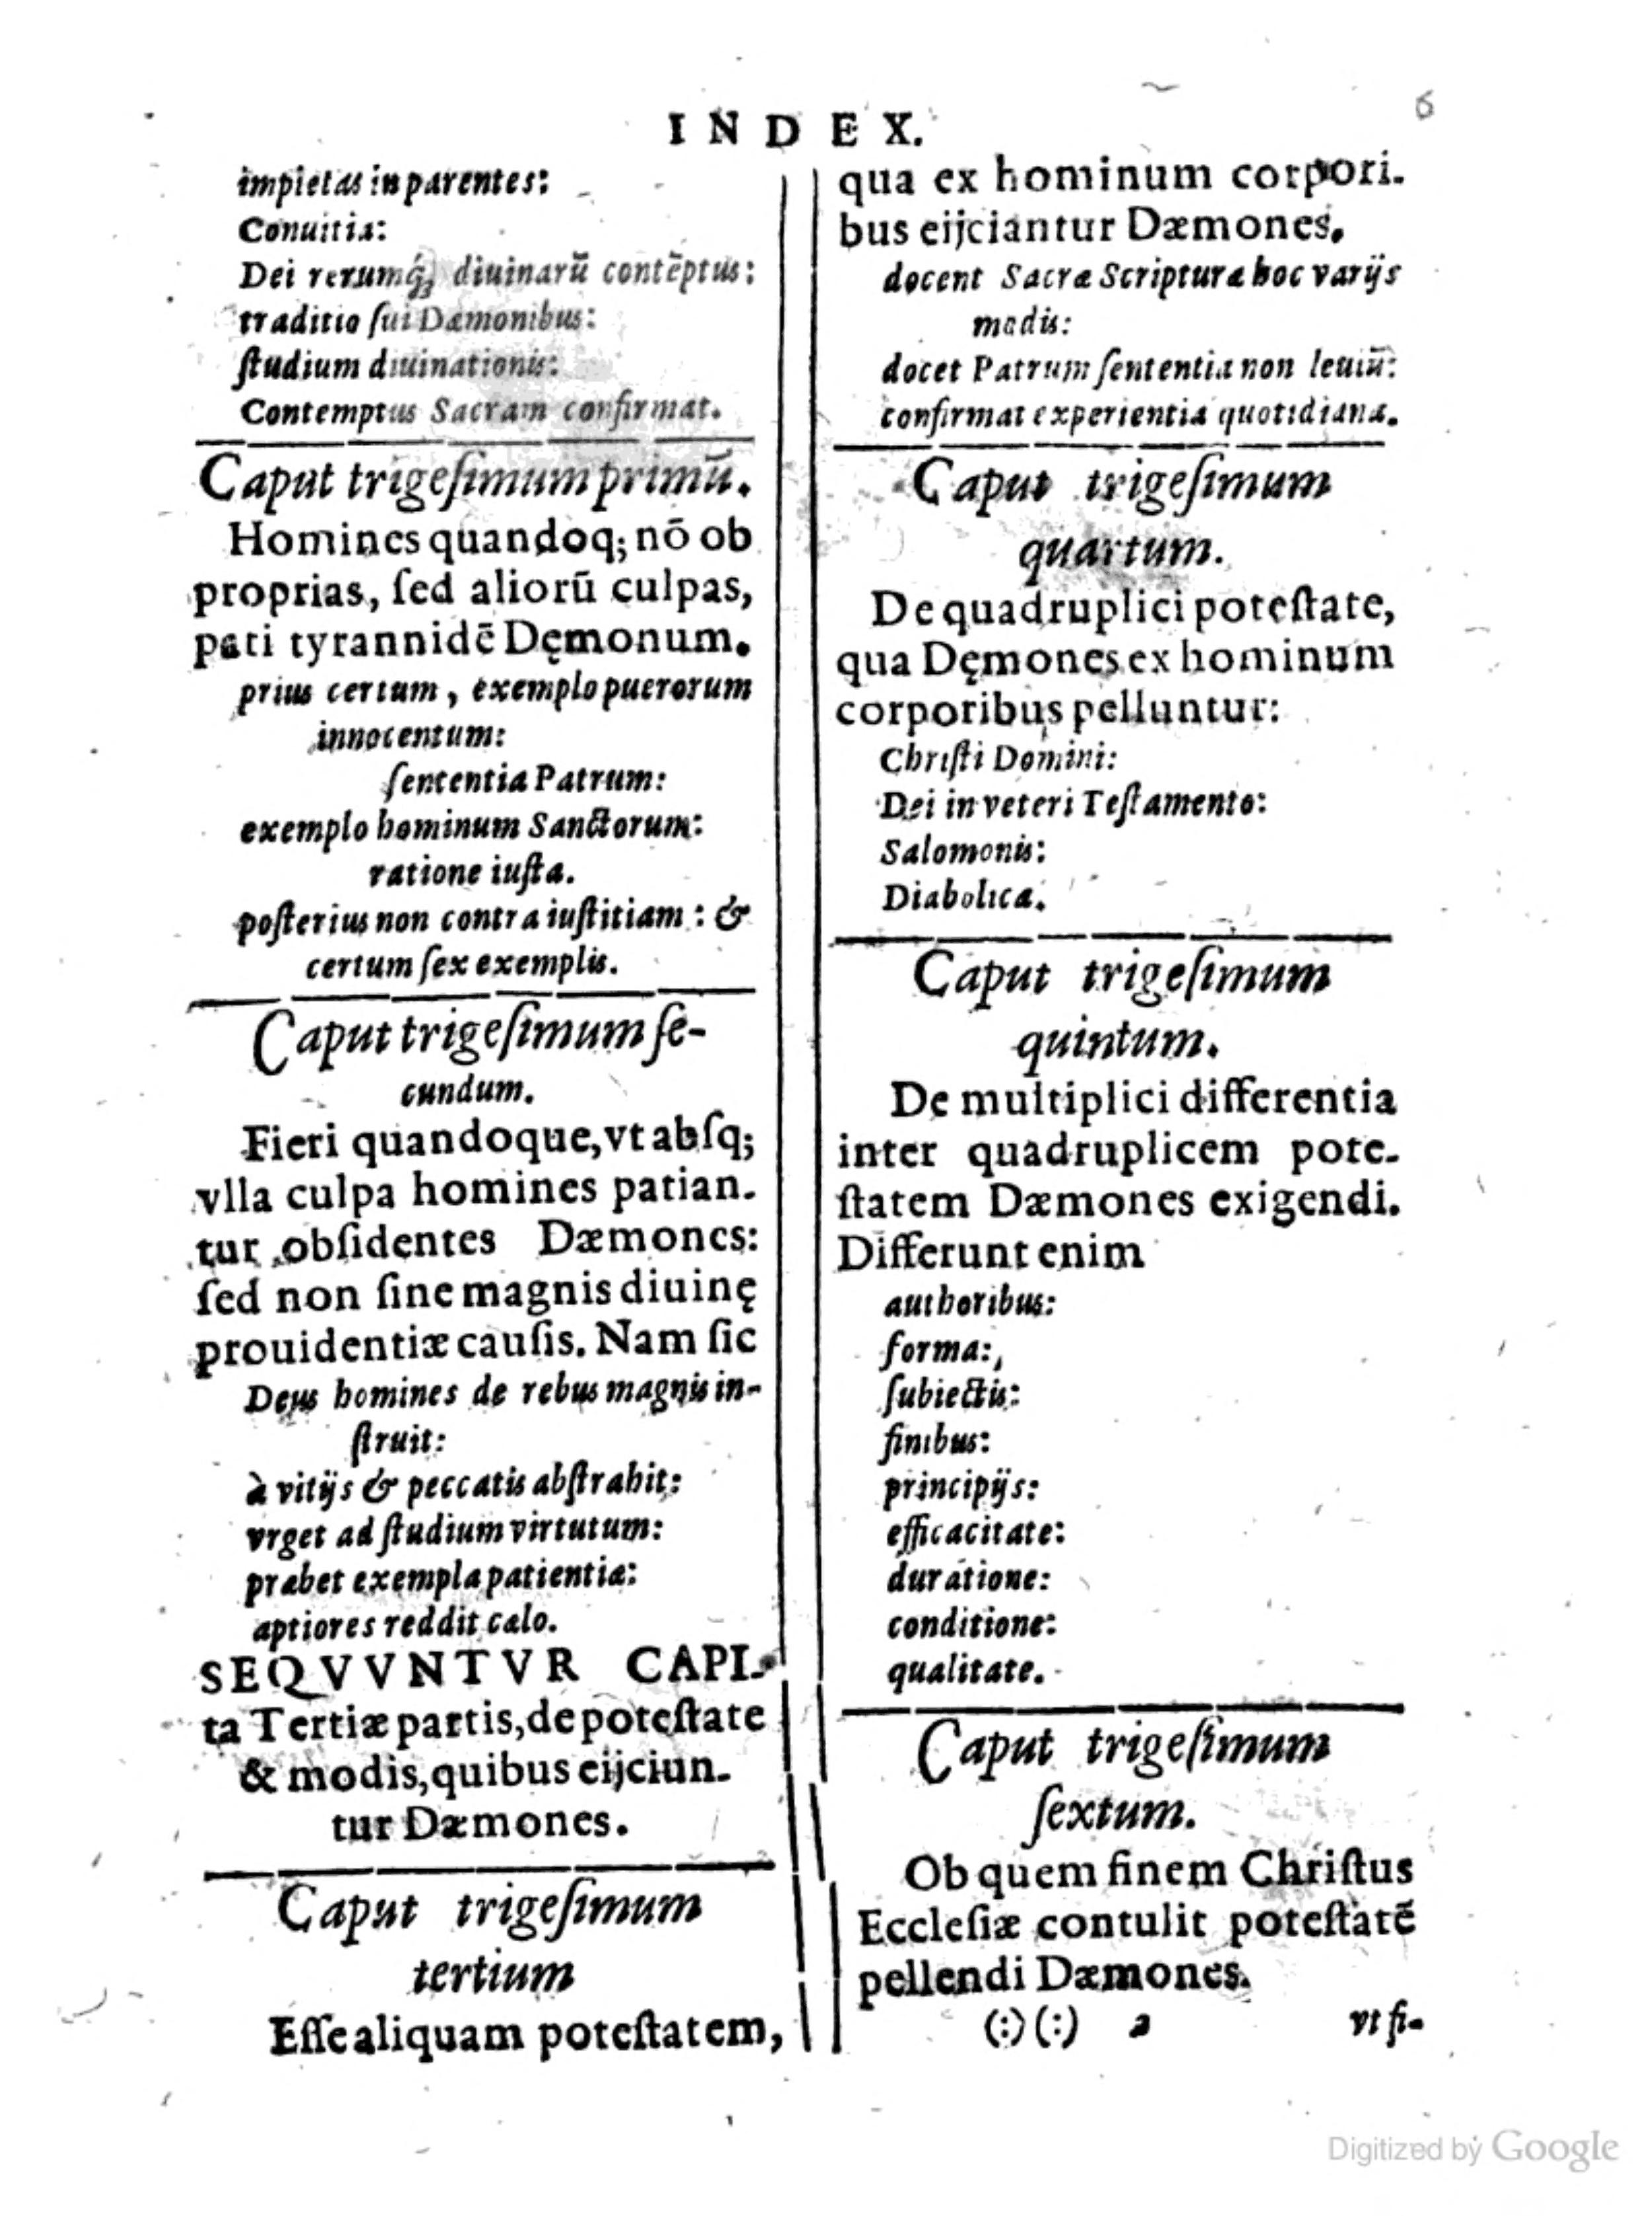 INDEX.
6
impietas in parentes:
Conuitia:
Dei rerumq́; diuinarū contēptus:
traditio ſui Dæmonibus:
ſtudium diuinationis:
Contemptus Sacram confirmat.
Caput trigeſimum primū.
Homines quandoq; nō ob
proprias, ſed aliorū culpas,
pati tyrannidē Dęmonum.
prius certum, exemplo puerorum
innocentum:
ſententia Patrum:
exemplo hominum Sanctorum:
ratione iuſta.
poſterius non contra iuſtitiam: &
certum ſex exemplis.
Caput trigeſimum ſe-
cundum.
Fieri quandoque, vt abſq;
vlla culpa homines patian-
tur obſidentes Dæmones:
ſed non ſine magnis diuinę
prouidentiæ cauſis. Nam ſic
Deus homines de rebus magnis in-
ſtruit:
à vitijs & peccatis abſtrahit:
vrget ad ſtudium virtutum:
præbet exempla patientiæ:
aptiores reddit cælo.
SEQVVNTVR CAPI-
ta Tertiæ partis, de poteſtate
& modis, quibus eijciun-
tur Dæmones.
Caput trigeſimum
tertium
Eſſe aliquam poteſtatem,
qua ex hominum corpori-
bus eijciantur Dæmones.
docent Sacræ Scripturæ hoc varijs
modis:
docet Patrum ſententia non leuiū:
confirmat experientia quotidiana.
Caput trigeſimum
quartum.
De quadruplici poteſtate,
qua Dęmones ex hominum
corporibus pelluntur:
Chriſti Domini:
Dei in veteri Teſtamento:
Salomonis:
Diabolica.
Caput trigeſimum
quintum.
De multiplici differentia
inter quadruplicem pote-
ſtatem Dæmones exigendi.
Differunt enim
authoribus:
forma:
ſubiectis:
finibus:
principijs:
efficacitate:
duratione:
conditione:
qualitate.
Caput trigeſimum
ſextum.
Ob quem finem Chriſtus
Eccleſiæ contulit poteſtatē
pellendi Dæmones.
(:) (:) a vt ſi-
Digitized by Google